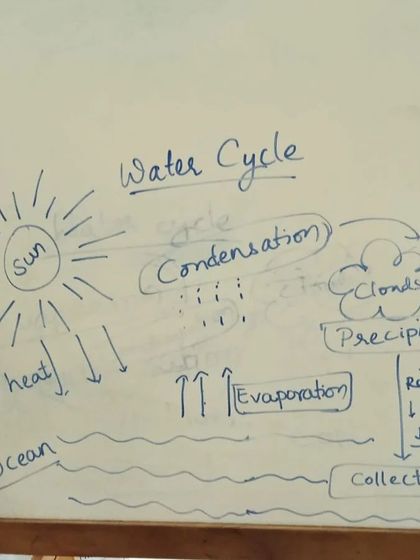 Water Cycle
Sun
Condensation
Clouds
Precipi
heat
Evaporation
R
Ocean
Collect